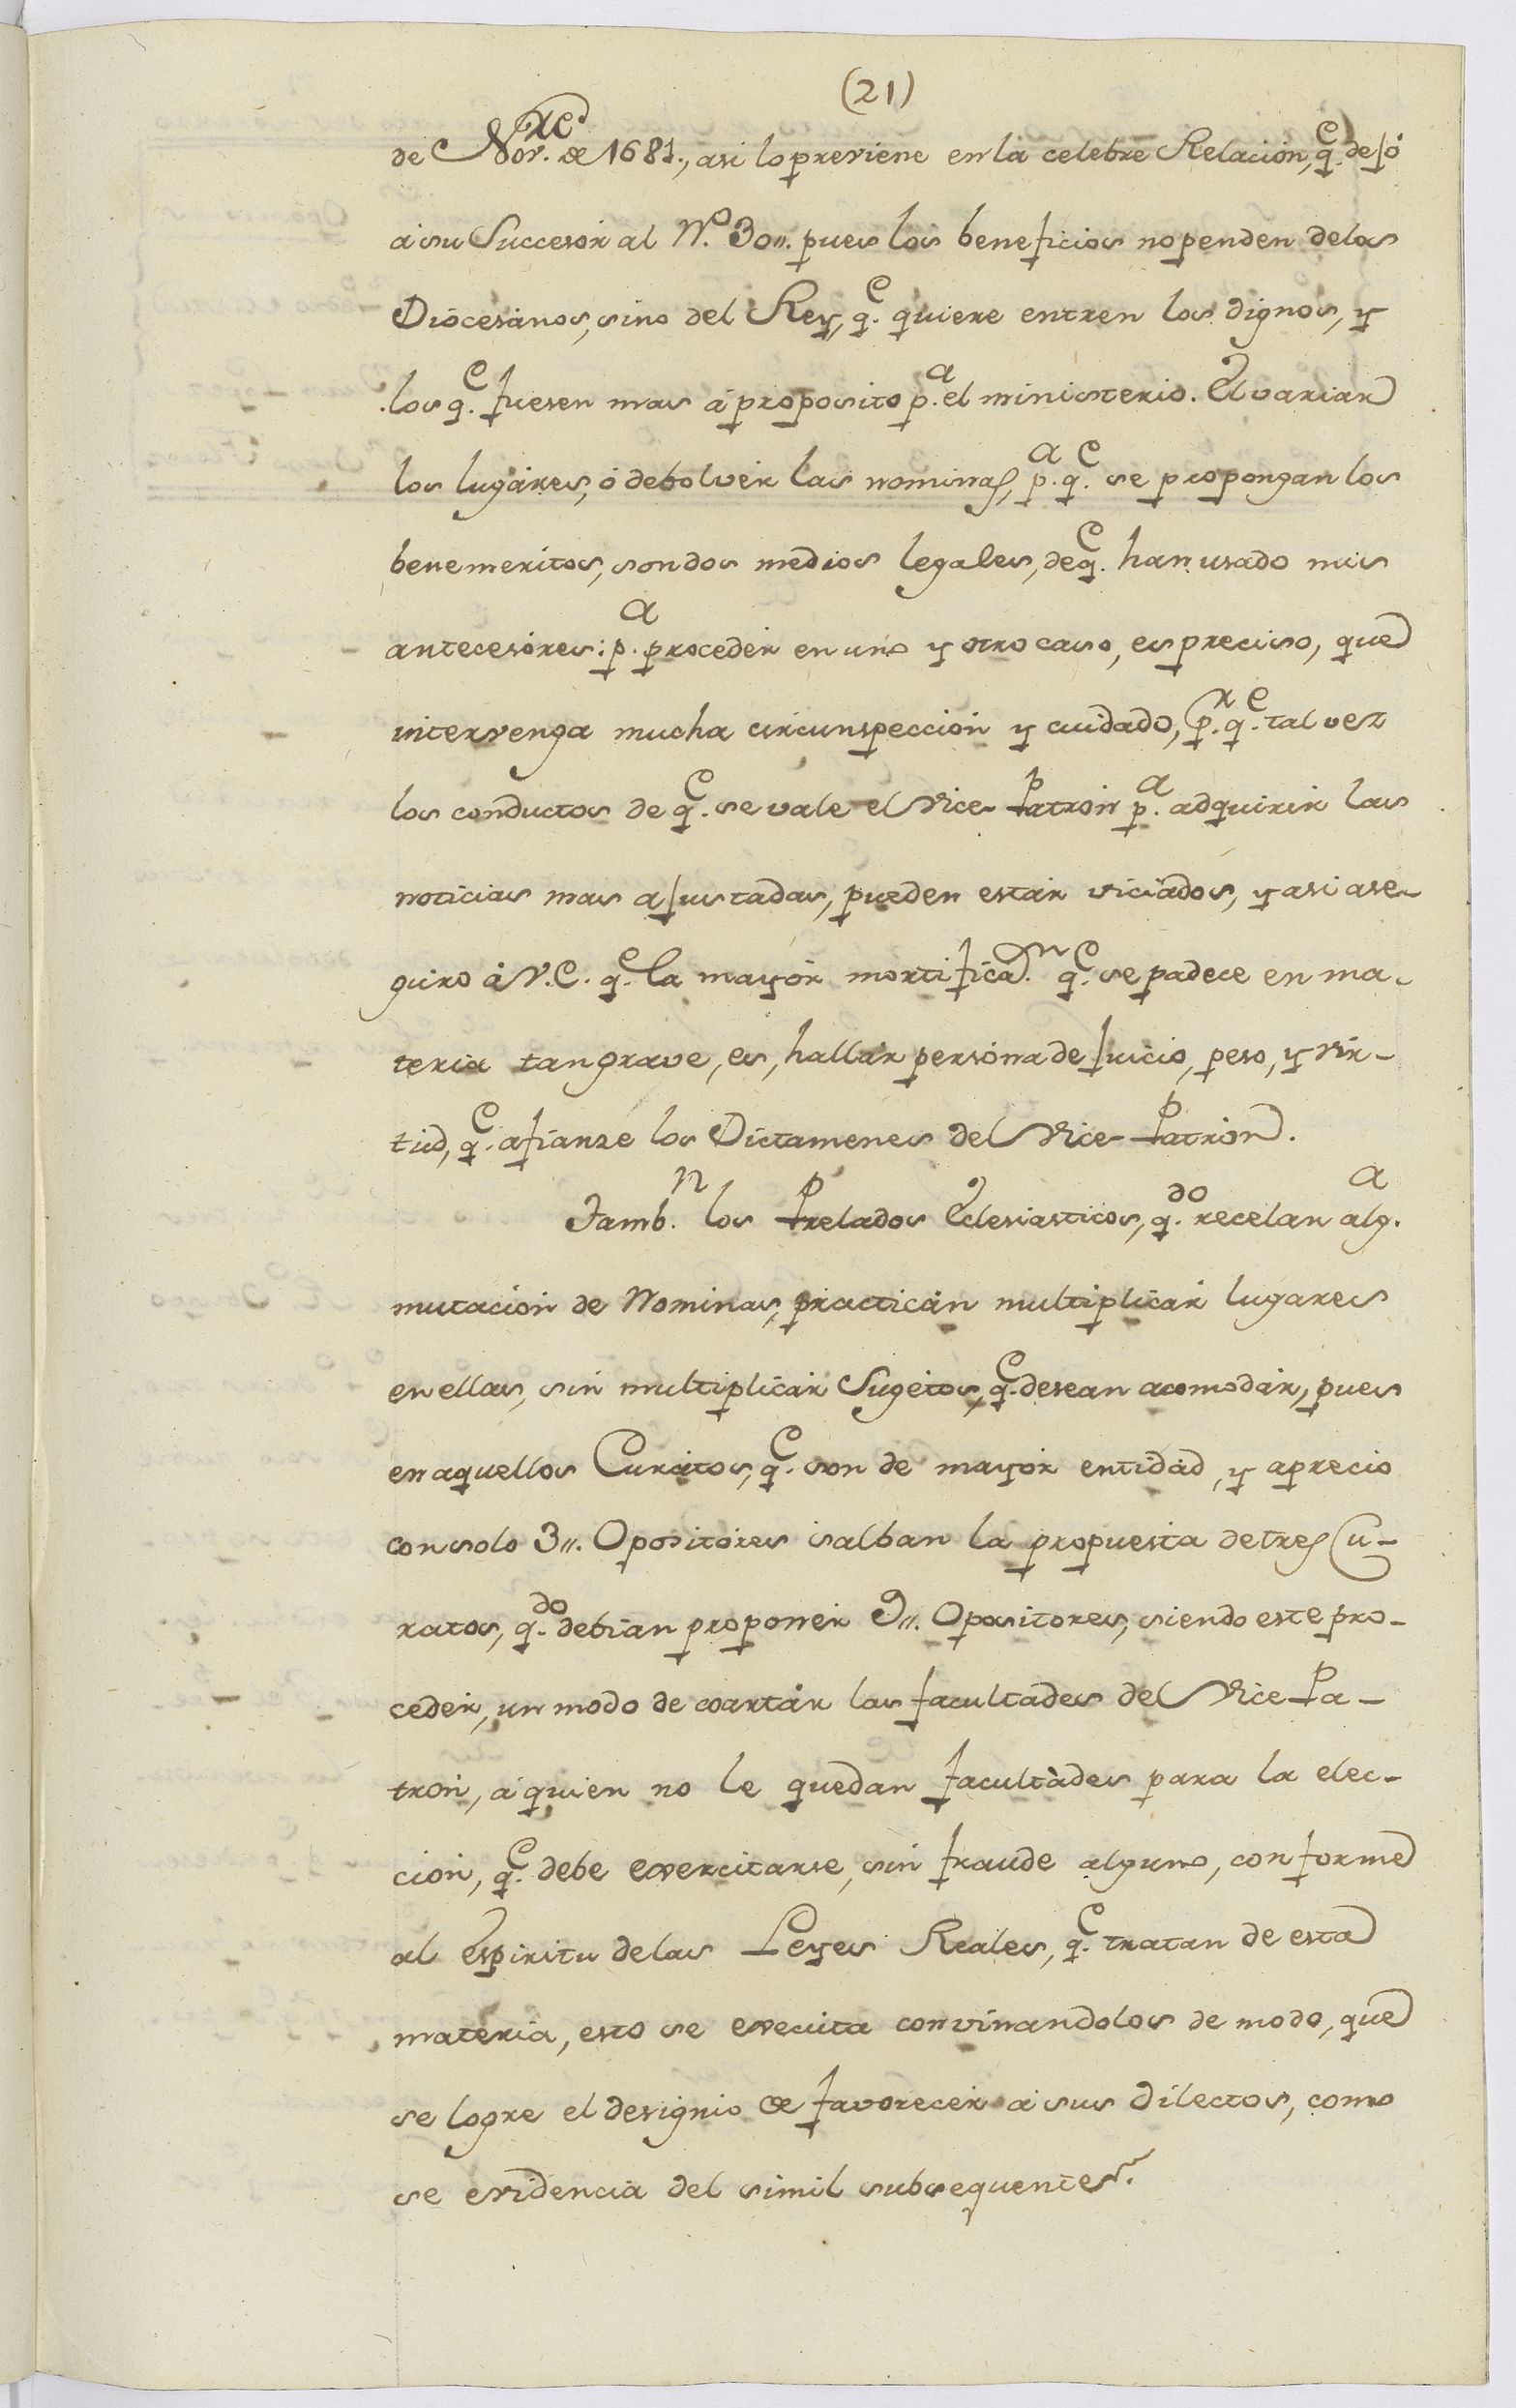 (21)
de Nov.re de 1681., asi lo previene en la celebre Relacion, q.e dejó
à su Succesor al N.o 30,,. pues los beneficios no penden de los
Diocesanos, sino del Rey, q.e quiere entren los dignos, y
los q.e fuesen mas á proposito p.a el ministerio. El variar
los lugares, ó debolver las nominas, p.a q.e se propongan los
benemeritos, son dos medios legales, de q.e han usado mis
antecesores: p.a proceder en uno y otro caso, es preciso, que
intervenga mucha circunspeccion y cuidado, p.r q.e tal vez
los conductos de q.e se vale el Vice-Patron p.a adquirir las
noticias mas ajustadas, pueden estar viciados, y asi ase-
guro à V.E. q.e la mayor mortifica.n q.e se padece en ma-
teria tan grave, es, hallar persona de juicio, peso, y vir-
tud, q.e afianze los Dictamenes del Vice-Patron.
Tamb.n los Prelados Eclesiasticos, q.do recelan alg.a
mutacion de Nominas, practican multiplicar lugares
en ellas, sin multiplicar Sugetos, q.e desean acomodar, pues
en aquellos Curatos, q.e son de mayor entidad, y aprecio
con solo 3,,. Opositores salban la propuesta de tres Cu-
ratos, q.do debian proponer 9,,. Opositores, siendo este pro-
ceder, un modo de coartar las facultades del Vice-Pa-
tron, á quien no le quedan facultades para la elec-
cion, q.e debe exercitarse, sin fraude alguno, conforme
al Espiritu de las Leyes Reales, q.e tratan de esta
materia, esto se execuita convinandolos de modo, que
se logre el designio de favorecer á sus dilectos, como
se evidencia del simil subsequente.